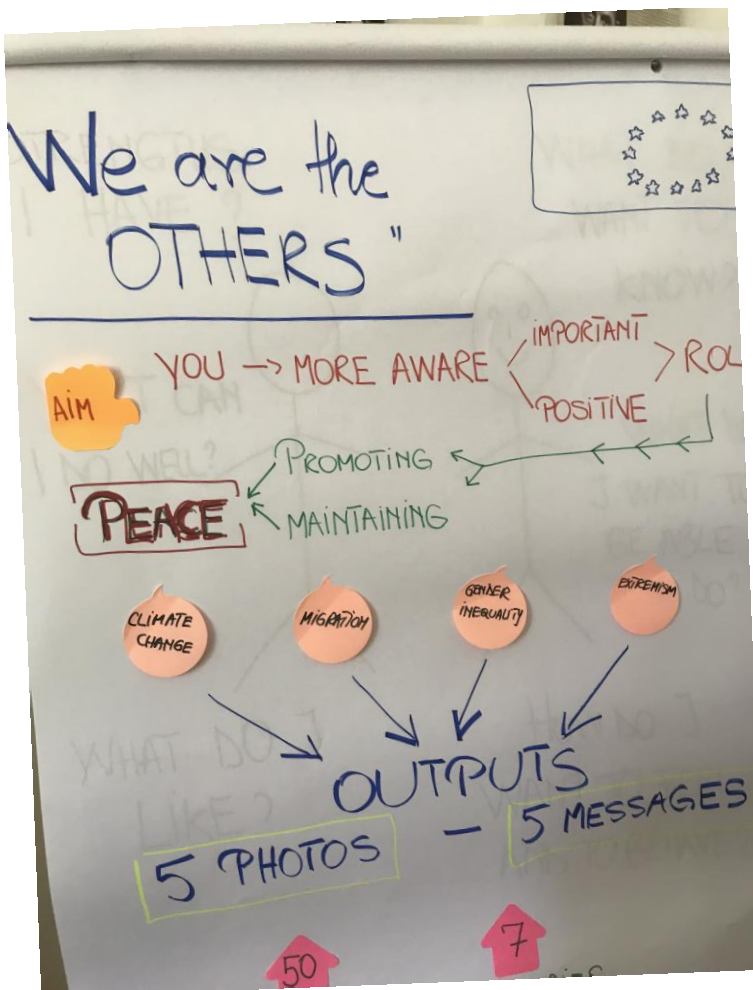 We are the
OTHERS"
AIM
YOU → MORE AWARE
IMPORTANT
POSITIVE
ROL
PROMOTING
MAINTAINING
PEACE
CLIMATE
CHANGE
MIGRATION
GENDER
INEQUALITY
EXTREMISM
OUTPUTS
5 PHOTOS - 5 MESSAGES
50
7